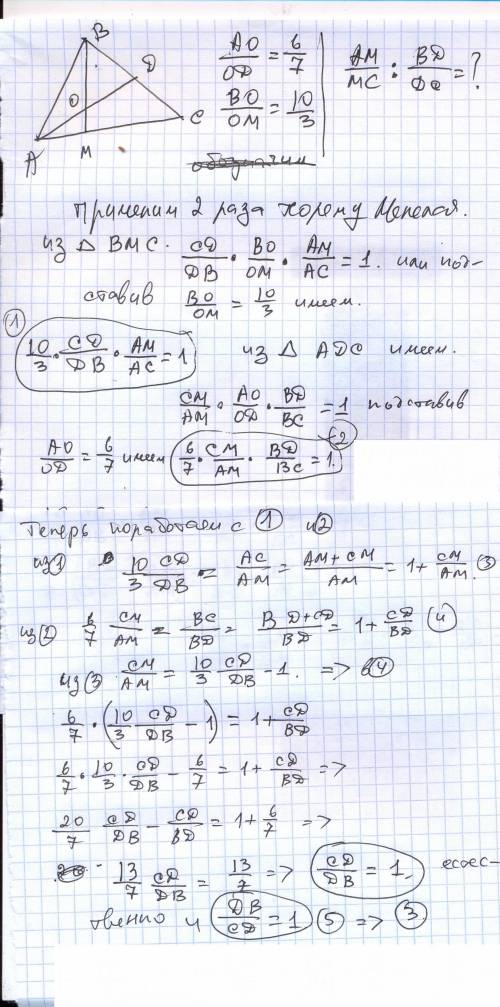 B
D
O
C
A
M
AO/OD = 6/7
BO/OM = 10/3
AM/MC : BD/DC = ?
Применим 2 раза теорему Менелая.
из △ BMC. CD/DB · BO/OM · AM/AC = 1. или под-
ставив BO/OM = 10/3 имеем.
① 10/3 · CD/DB · AM/AC = 1 из △ ADC имеем.
CM/AM · AO/OD · BD/BC = 1 подставив
AO/OD = 6/7 имеем 6/7 · CM/AM · BD/BC = 1. ②
Теперь поработаем с ① и ②
из ① 10/3 CD/DB = AC/AM = AM+CM/AM = 1 + CM/AM. ③
из ② 6/7 CM/AM = BC/BD = BD+CD/BD = 1 + CD/BD ④
из ③ CM/AM = 10/3 CD/DB - 1. => в ④
6/7 · (10/3 CD/DB - 1) = 1 + CD/BD
6/7 · 10/3 · CD/DB - 6/7 = 1 + CD/BD =>
20/7 CD/DB - CD/BD = 1 + 6/7 =>
13/7 CD/DB = 13/7 => CD/DB = 1. есоес-
твенно и DB/CD = 1 ⑤ => ③